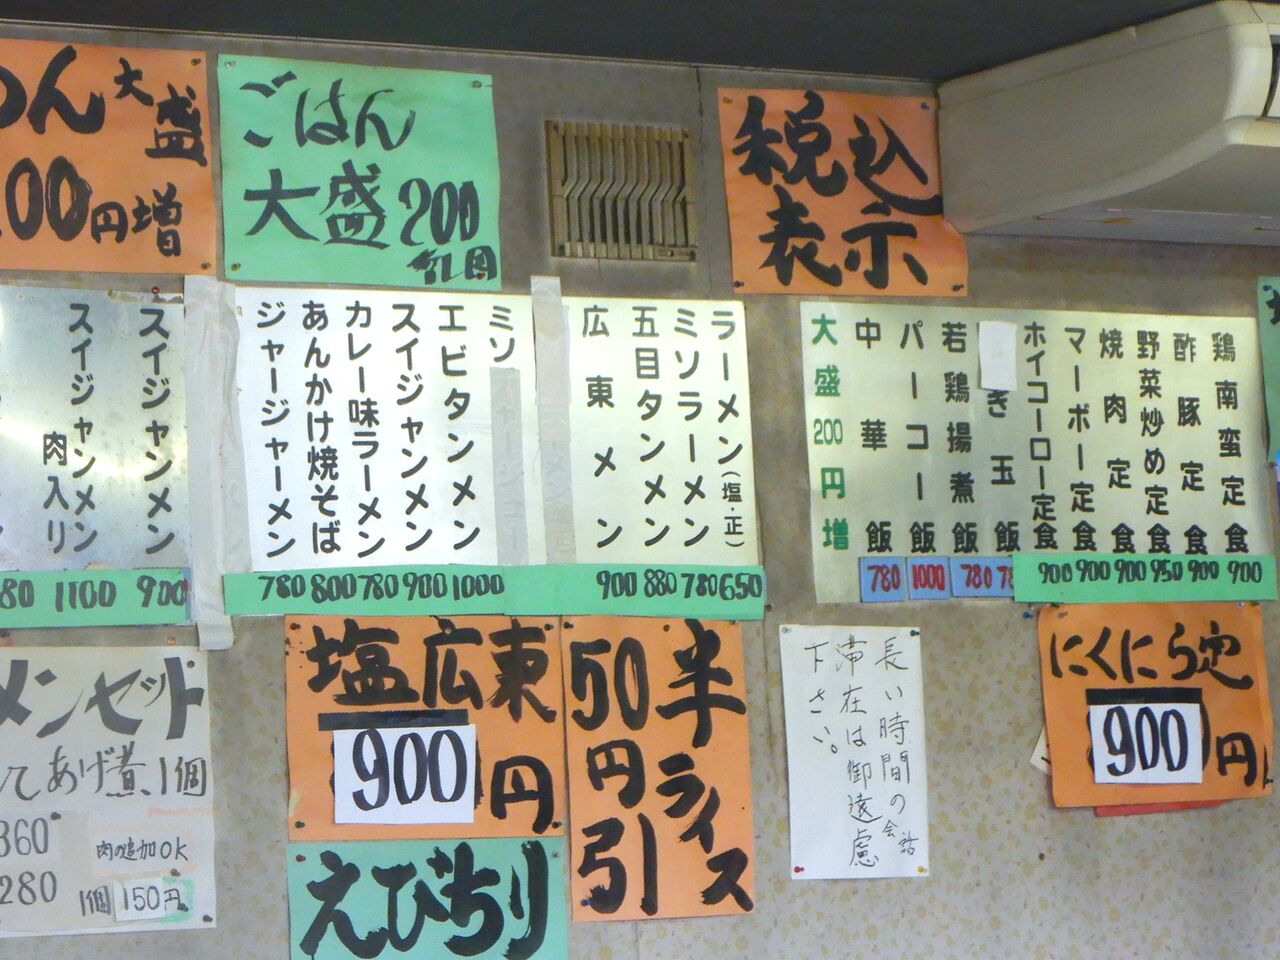 めん大盛
100円増
ごはん
大盛200
円増
税込
表示
ラーメン(塩・正) 650
ミソラーメン 780
五目タンメン 880
広東メン 900
ミソ
エビタンメン 1000
スイジャンメン 900
カレー味ラーメン 780
あんかけ焼そば 800
ジャージャーメン 780
スイジャンメン 900
スイジャンメン肉入り 1100
鶏南蛮定食 900
酢豚定食 900
野菜炒め定食 950
焼肉定食 900
マーボー定食 900
ホイコーロー定食 900
き玉飯 78
若鶏揚煮飯 780
パーコー飯 1000
中華飯 780
大盛200円増
メンセット
あげ煮1個
360
肉の追加OK
280
1個150円
塩広東
900円
えびちり
半ライス
50円引
長い時間の会話
滞在は御遠慮
下さい。
にくにら定
900円